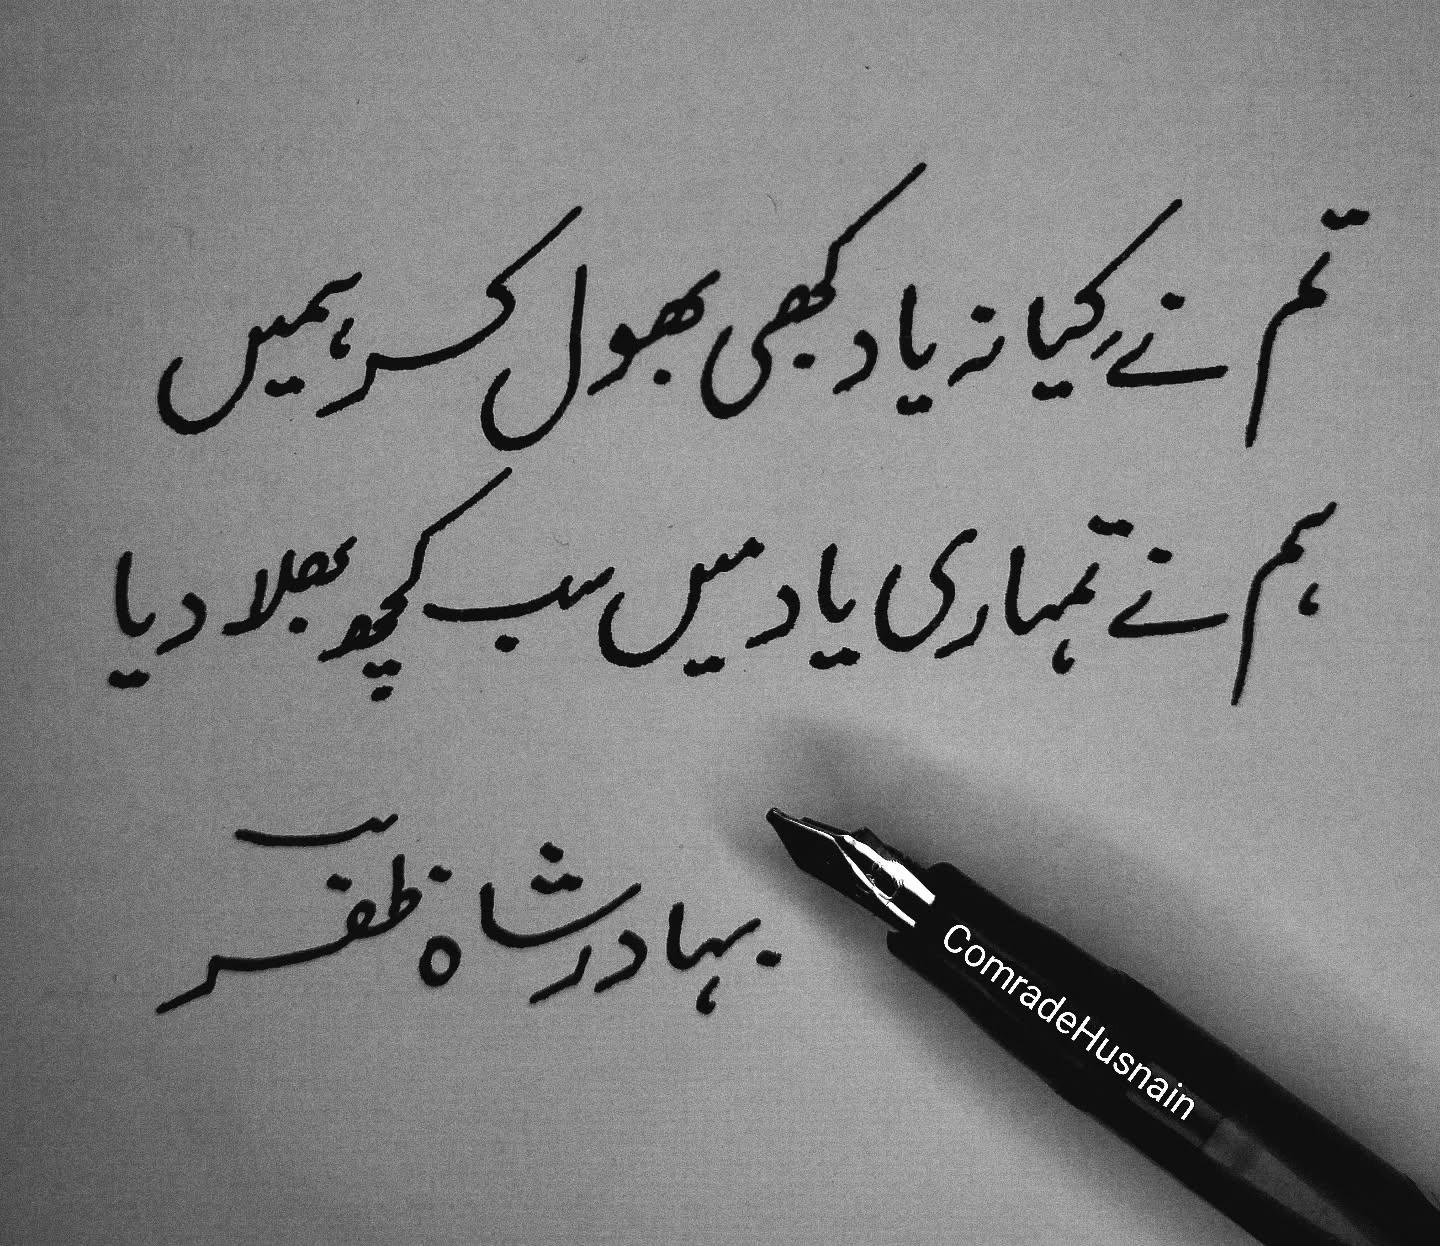 تم نے کیا نہ یاد کبھی بھول کر ہمیں
ہم نے تمہاری یاد میں سب کچھ بھلا دیا
بہادر شاہ ظفر
ComradeHusnain